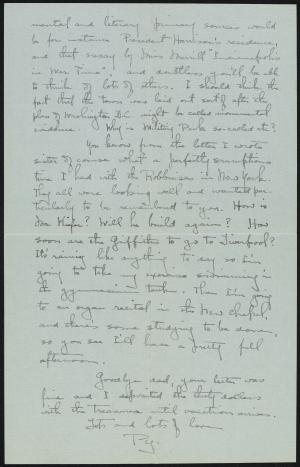 mental and literary primary sources would
be for instance President Harrison's residence,
and that essay by Miss Merrill "Indianapolis
in War Time", and doubtless you'll be able
to think of lots of others. I should think the
fact that the town was laid out sort of after the
plan of Washington D.C. might be called monumental
evidence. Why is Military Park so-called etc?
You know from the letter I wrote
sister of course what a perfectly scrumptious
time I had with the Robbinses in New York.
They all were looking well and wanted par-
ticularly to be remembered to you. How is
Mr. Kiefer? Will he build again? How
soon are the Griffiths to go to Liverpool?
It's raining like anything to-day so I'm
going to take my exercise swimming in
the gymnasium tank. Then I'm going
to an organ recital in the New Chapel,
and there's some studying to be done,
so you see I'll have a pretty full
afternoon.
Goodbye dad, your letter was
fine and I deposited the thirty dollars
with the treasurer until vacation arrives.
Lots and lots of love